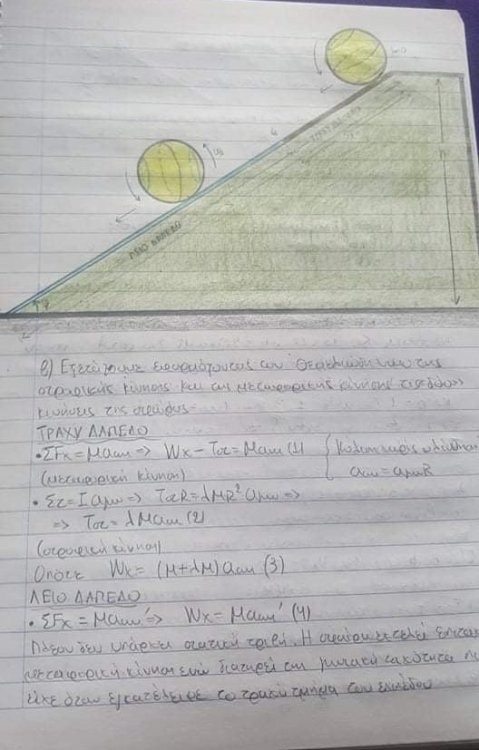 h
ΤΡΑΧΥ ΔΑΠΕΔΟ
ΛΕΙΟ ΔΑΠΕΔΟ
φ
β) Εξετάζουμε εφαρμόζοντας τον θεμελιώδη νόμο της
στροφικής κίνησης και της μεταφορικής κίνησης τις δύο
κινήσεις της σφαίρας
ΤΡΑΧΥ ΔΑΠΕΔΟ
• ΣFx = Macm => Wx - Tστ = Macm (1)
(μεταφορική κίνηση)
Κύλιση χωρίς ολίσθηση
acm = aγωνR
• Στ = Iαγων => TστR = λMR² αγων =>
=> Tστ = λMacm (2)
(στροφική κίνηση)
Οπότε Wx = (M+λM)acm (3)
ΛΕΙΟ ΔΑΠΕΔΟ
• ΣFx = Macm' => Wx = Macm' (4)
Πλέον δεν υπάρχει στατική τριβή. Η σφαίρα εκτελεί
μεταφορική κίνηση ενώ διατηρεί την γωνιακή ταχύτητα
είχε όταν εγκατέλειψε το τραχύ τμήμα του επιπέδου